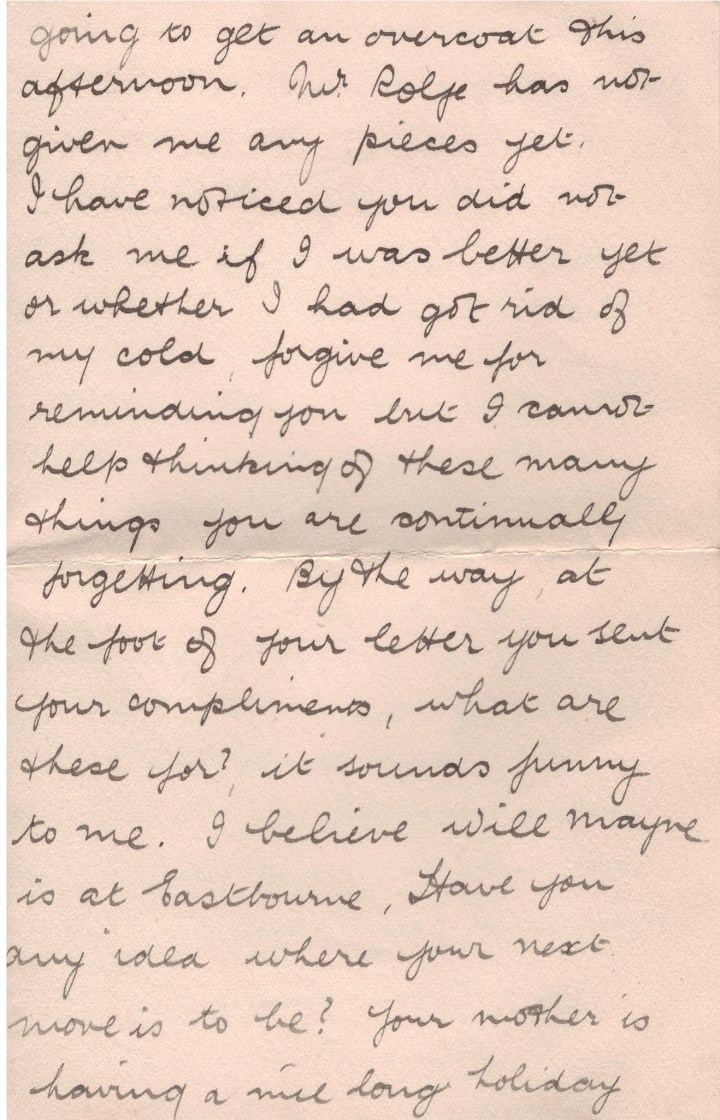 going to get an overcoat this
afternoon. Mr. Rolfe has not
given me any pieces yet.
I have noticed you did not
ask me if I was better yet
or whether I had got rid of
my cold, forgive me for
reminding you but I cannot
help thinking of these many
things you are continually
forgetting. By the way, at
the foot of your letter you sent
your compliments, what are
these for?, it sounds funny
to me. I believe Will Mayne
is at Eastbourne, Have you
any idea where your next
move is to be? Your mother is
having a nice long holiday